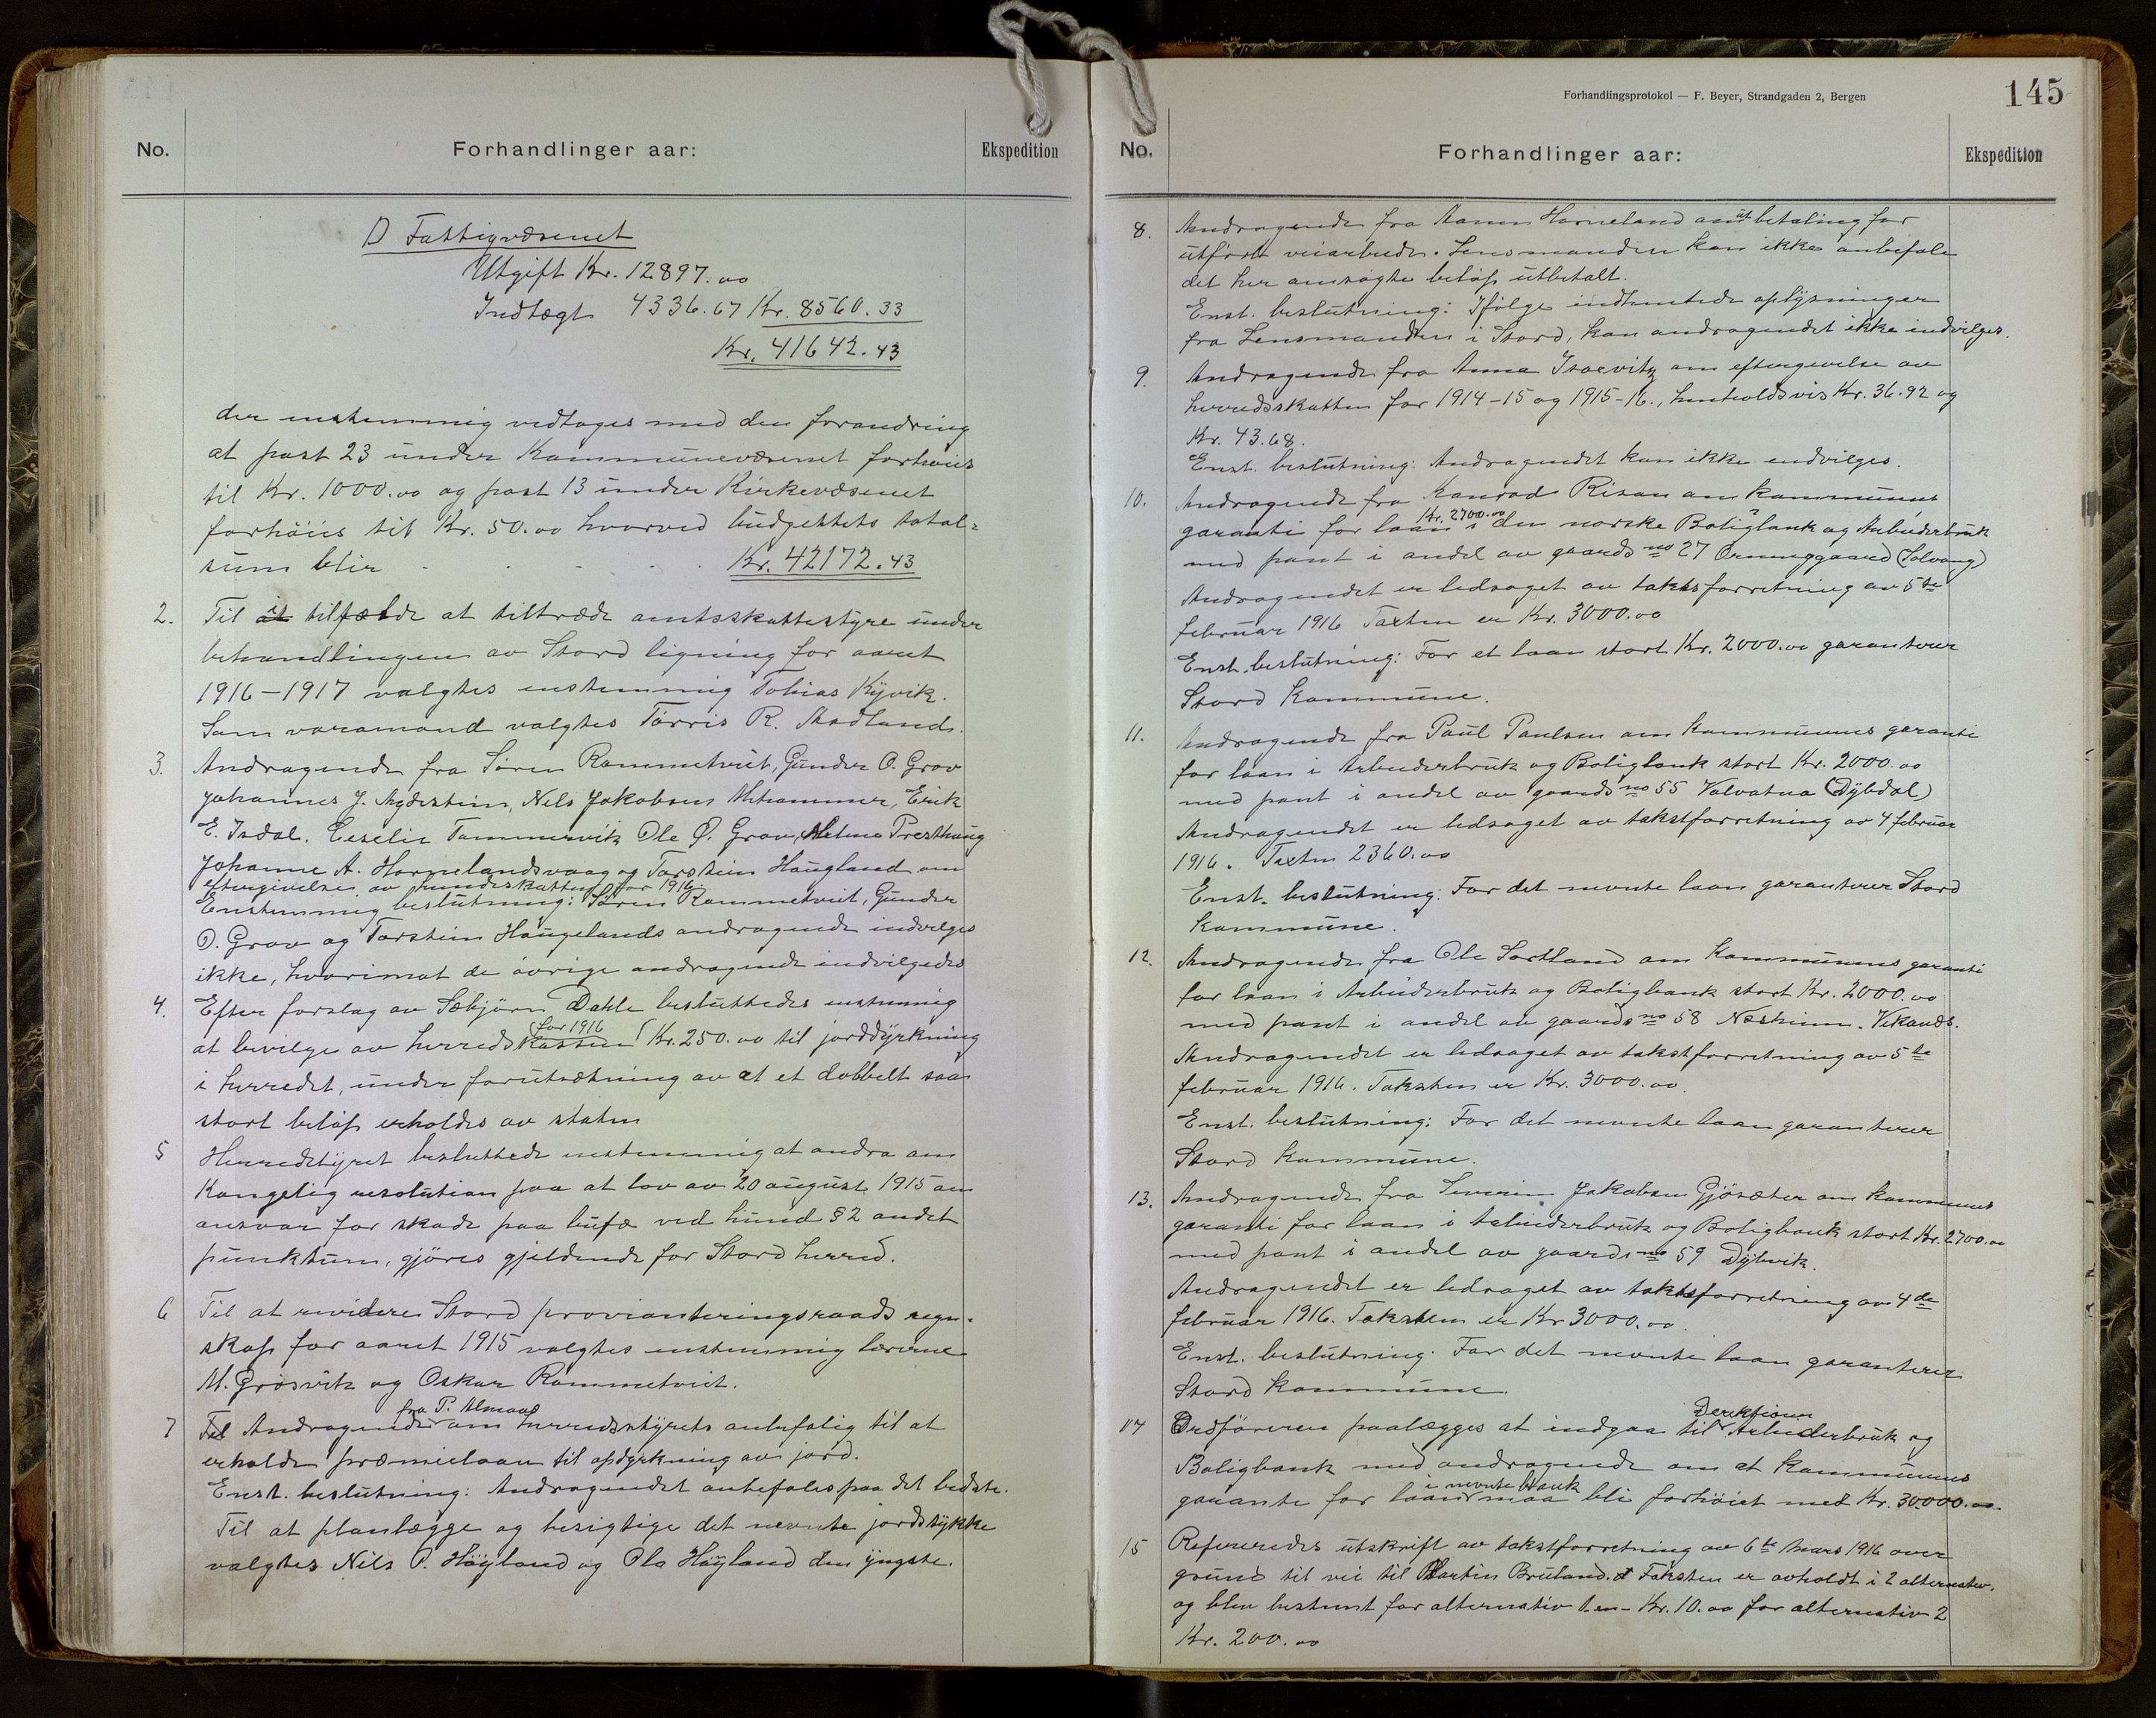 No.
Forhandlinger aar:
Ekspedition
D Fattigvæsenet
Utgift Kr. 12897.00
Indtægt 4336.67 Kr. 8560.33
Kr. 41642.43
der enstemmig vedtages med den forandring
at post 23 under Kommunevæsenet forhøies
til Kr. 1000.00 og post 13 under Kirkevæsenet
forhöies til Kr. 50.00 hvorved budgettets total-
sum blir . . . . Kr. 42172.43
2. Til at tilfælde at tiltræde amtsskattestyre under
behandlingen av Stord ligning for aaret
1916-1917 valgtes enstemmig Tobias Kyvik.
Som varamand valgtes Tørris R. Aadland.
3. Andragende fra Sören Rommetveit, Gunder O. Grov
Johannes J. Agdestein, Nels Jakobsen Uthammer, Erik
E. Isdal. Eeselie Tommervik Ole Ø. Grov, Helene Presthaug
Johanne A. Hornelandsvaag og Torstein Haugland om
eftergivelse av hundeskatten for 1916.
Enstemmig beslutning: Sören Rommetveit, Gunder
O. Grov og Torstein Haugelands andragende indvilges
ikke, hvorimot de övrige andragende indvilgedes
4. Efter forslag av Sæbjørn Dahle besluttedes enstemmig
for 1916
at bevilge av herredskassen Kr. 250.00 til jorddyrkning
i herredet, under forutsætning av at et dobbelt saa
stort beløp erholdes av staten
5 Herredstyret besluttede enstemmig at andra om
Kongelig resolution paa at lov av 20 august 1915 om
ansvar for skade paa bufæ ved hund § 2 andet
punktum, gjöres gjeldende for Stord herred.
6 Til at revidere Stord provianteringsraads regn-
skap for aaret 1915 valgtes enstemmig lærerne
M. Grosvik og Oskar Rommetveit.
fra P. Almaas
7 Til Andragende om herredsstyrets anbefalig til at
erholde præmielaan til opdyrkning av jord.
Enst. beslutning: Andragendet anbefales paa det bedste.
Til at planlægge og besigtige det nevnte jordstykke
valgtes Nils P. Höyland og Ola Höyland den yngste.
Forhandlingsprotokol — F. Beyer, Strandgaden 2, Bergen
145
No.
Forhandlinger aar:
Ekspedition
8. Andragende fra Aamun Horneland om utbetaling for
utført veiarbeide. Lensmanden kan ikke anbefale
det her ansøgte beløp utbetalt.
Enst. beslutning: Ifölge indhentede oplysninger
fra Lensmanden i Stord, kan andragendet ikke indvilges.
9. Andragende fra Anna Isaevitz om eftergivelse av
herredsskatten for 1914-15 og 1915-16., henholdsvis Kr. 36.92 og
Kr. 43.68.
Enst. beslutning: Andragendet kan ikke indvilges.
10. Andragende fra Konrad Risan om kommunens
Kr. 2700.00
garanti for laan i den norske Boligbank og Arbeiderbruk
med pant i andel av gaards no 27 Orninggaard (Solvang)
Andragendet er ledsaget av takstforretning av 5te
februar 1916 Taxten er Kr. 3000.00
Enst. beslutning: For et laan stort Kr. 2000.00 garanterer
Stord kommune.
11. Andragende fra Paul Paulsen om Kommunens garanti
for laan i Arbeiderbruk og Boligbank stort Kr. 2000.00
med pant i andel av gaards no 55 Valvatna (Dybdal)
Andragendet er ledsaget av takstforretning av 4 februar
1916. Taxten 2360.00
Enst. beslutning: For det nevnte laan garanterer Stord
kommune.
12. Andragende fra Ole Sortland om Kommunens garanti
for laan i Arbeiderbruk og Boligbank stort Kr. 2000.00
med pant i andel av gaards no 58 Næsheim. Vikands.
Andragendet er ledsaget av takstforretning av 5te
februar 1916. Taksten er Kr. 3000.00.
Enst. beslutning: For det nevnte laan garanterer
Stord kommune.
13. Andragende fra Severin Jakobsen Gjösæter om kommunens
garanti for laan i Arbeiderbruk og Boligbank stort Kr. 2700.00
med pant i andel av gaards no 59 Dybvik.
Andragendet er ledsaget av takstforretning av 4de
februar 1916. Taksten er Kr 3000.00.
Enst. beslutning. For det nevnte laan garanterer
Stord kommune.
Derektionen
14 Ordføreren paalægges at indgaa til Arbeiderbruk og
Boligbank med andragende om at Kommunens
i nevnte bank
garante for laan maa bli forhöiet med Kr. 30000.00.
15 Refereredes utskrift av takstforretning av 6te Mars 1916 over
grund til vei til Martin Bruland. Taksten er avholdt i 2 alternativ.
og blev bestemt for alternativ 1 en - Kr. 10.00 for alternativ 2
Kr. 200.00